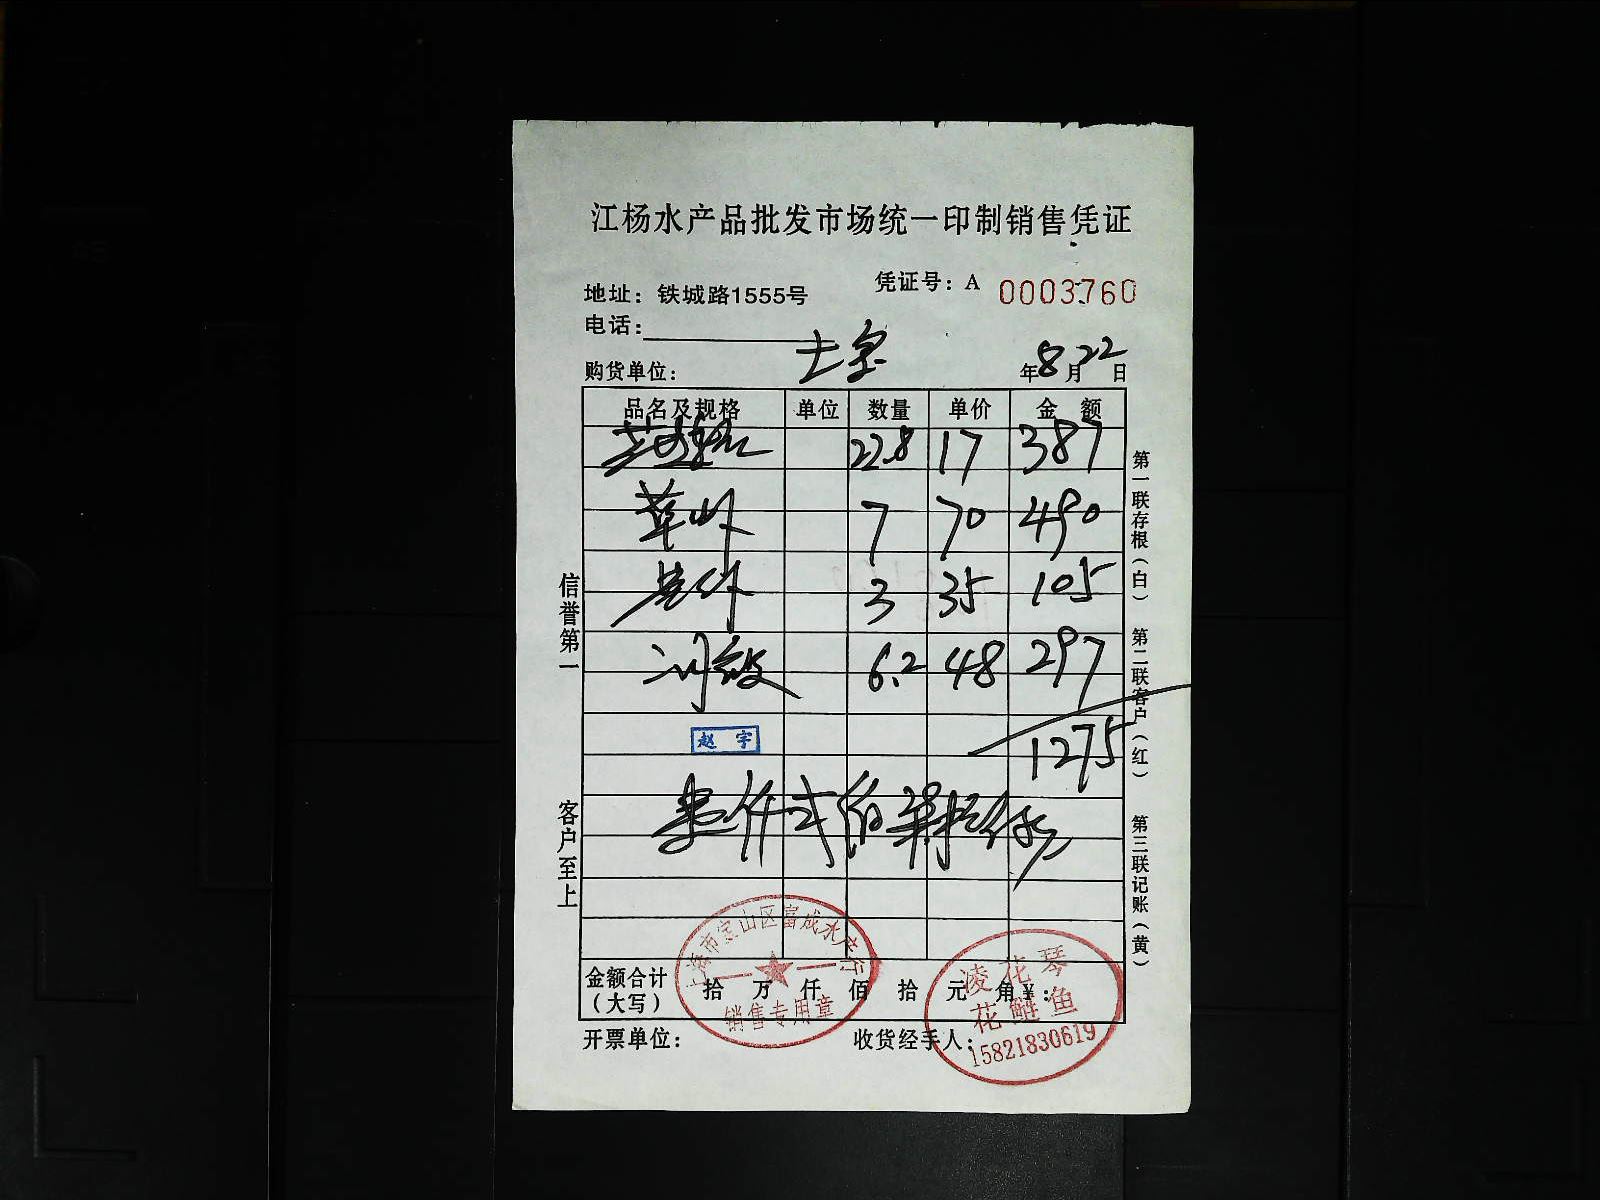 江杨水产品批发市场统一印制销售凭证
凭证号：A 0003760
地址：铁城路1555号
电话：
购货单位：
年8月22日
品名及规格 单位 数量 单价 金 额
22.8 17 387
草虾 7 70 490
3 35 105
6.2 48 297
赵 宇
1275
信誉第一
客户至上
第一联存根（白） 第二联客户（红） 第三联记账（黄）
上海市宝山区富成水产行
销售专用章
凌花琴
花鲢鱼
15821830619
金额合计（大写） 拾 万 仟 佰 拾 元 角 ¥：
开票单位： 收货经手人：